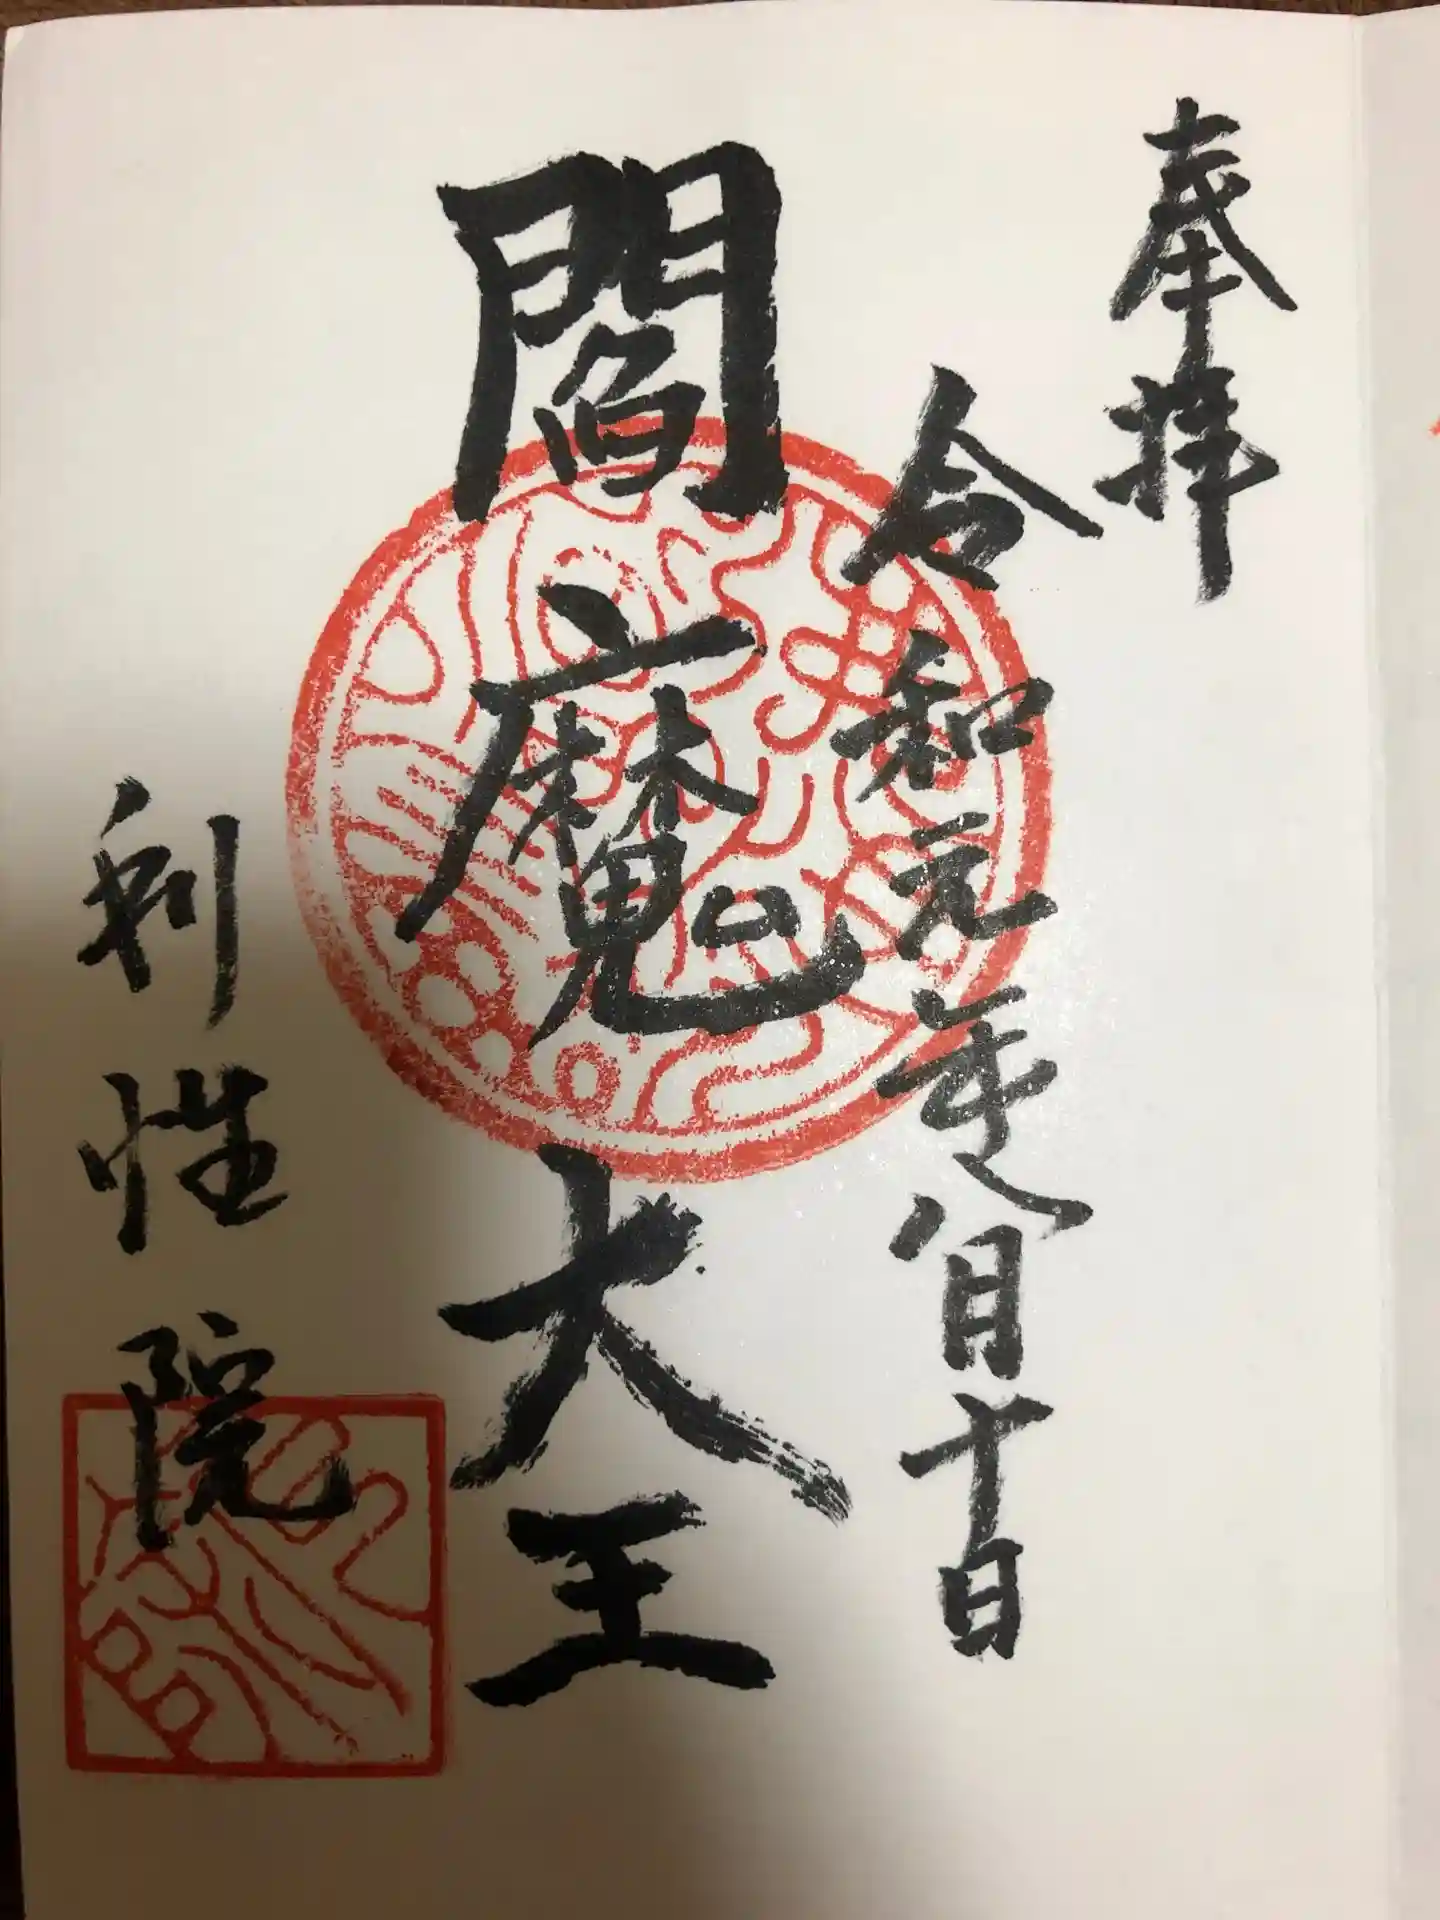 奉拝
令和元年八月十日
閻魔大王
利性院